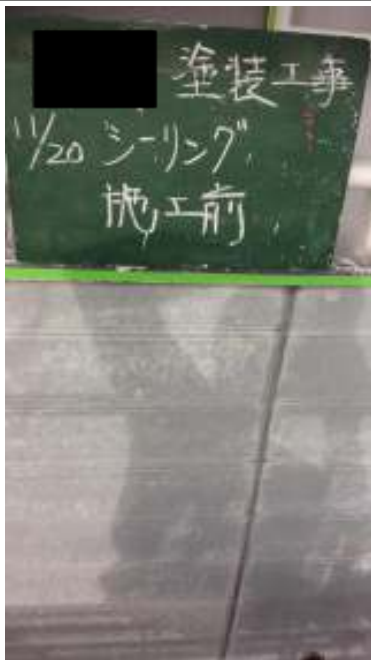 塗装工事
11/20 シーリング
施工前